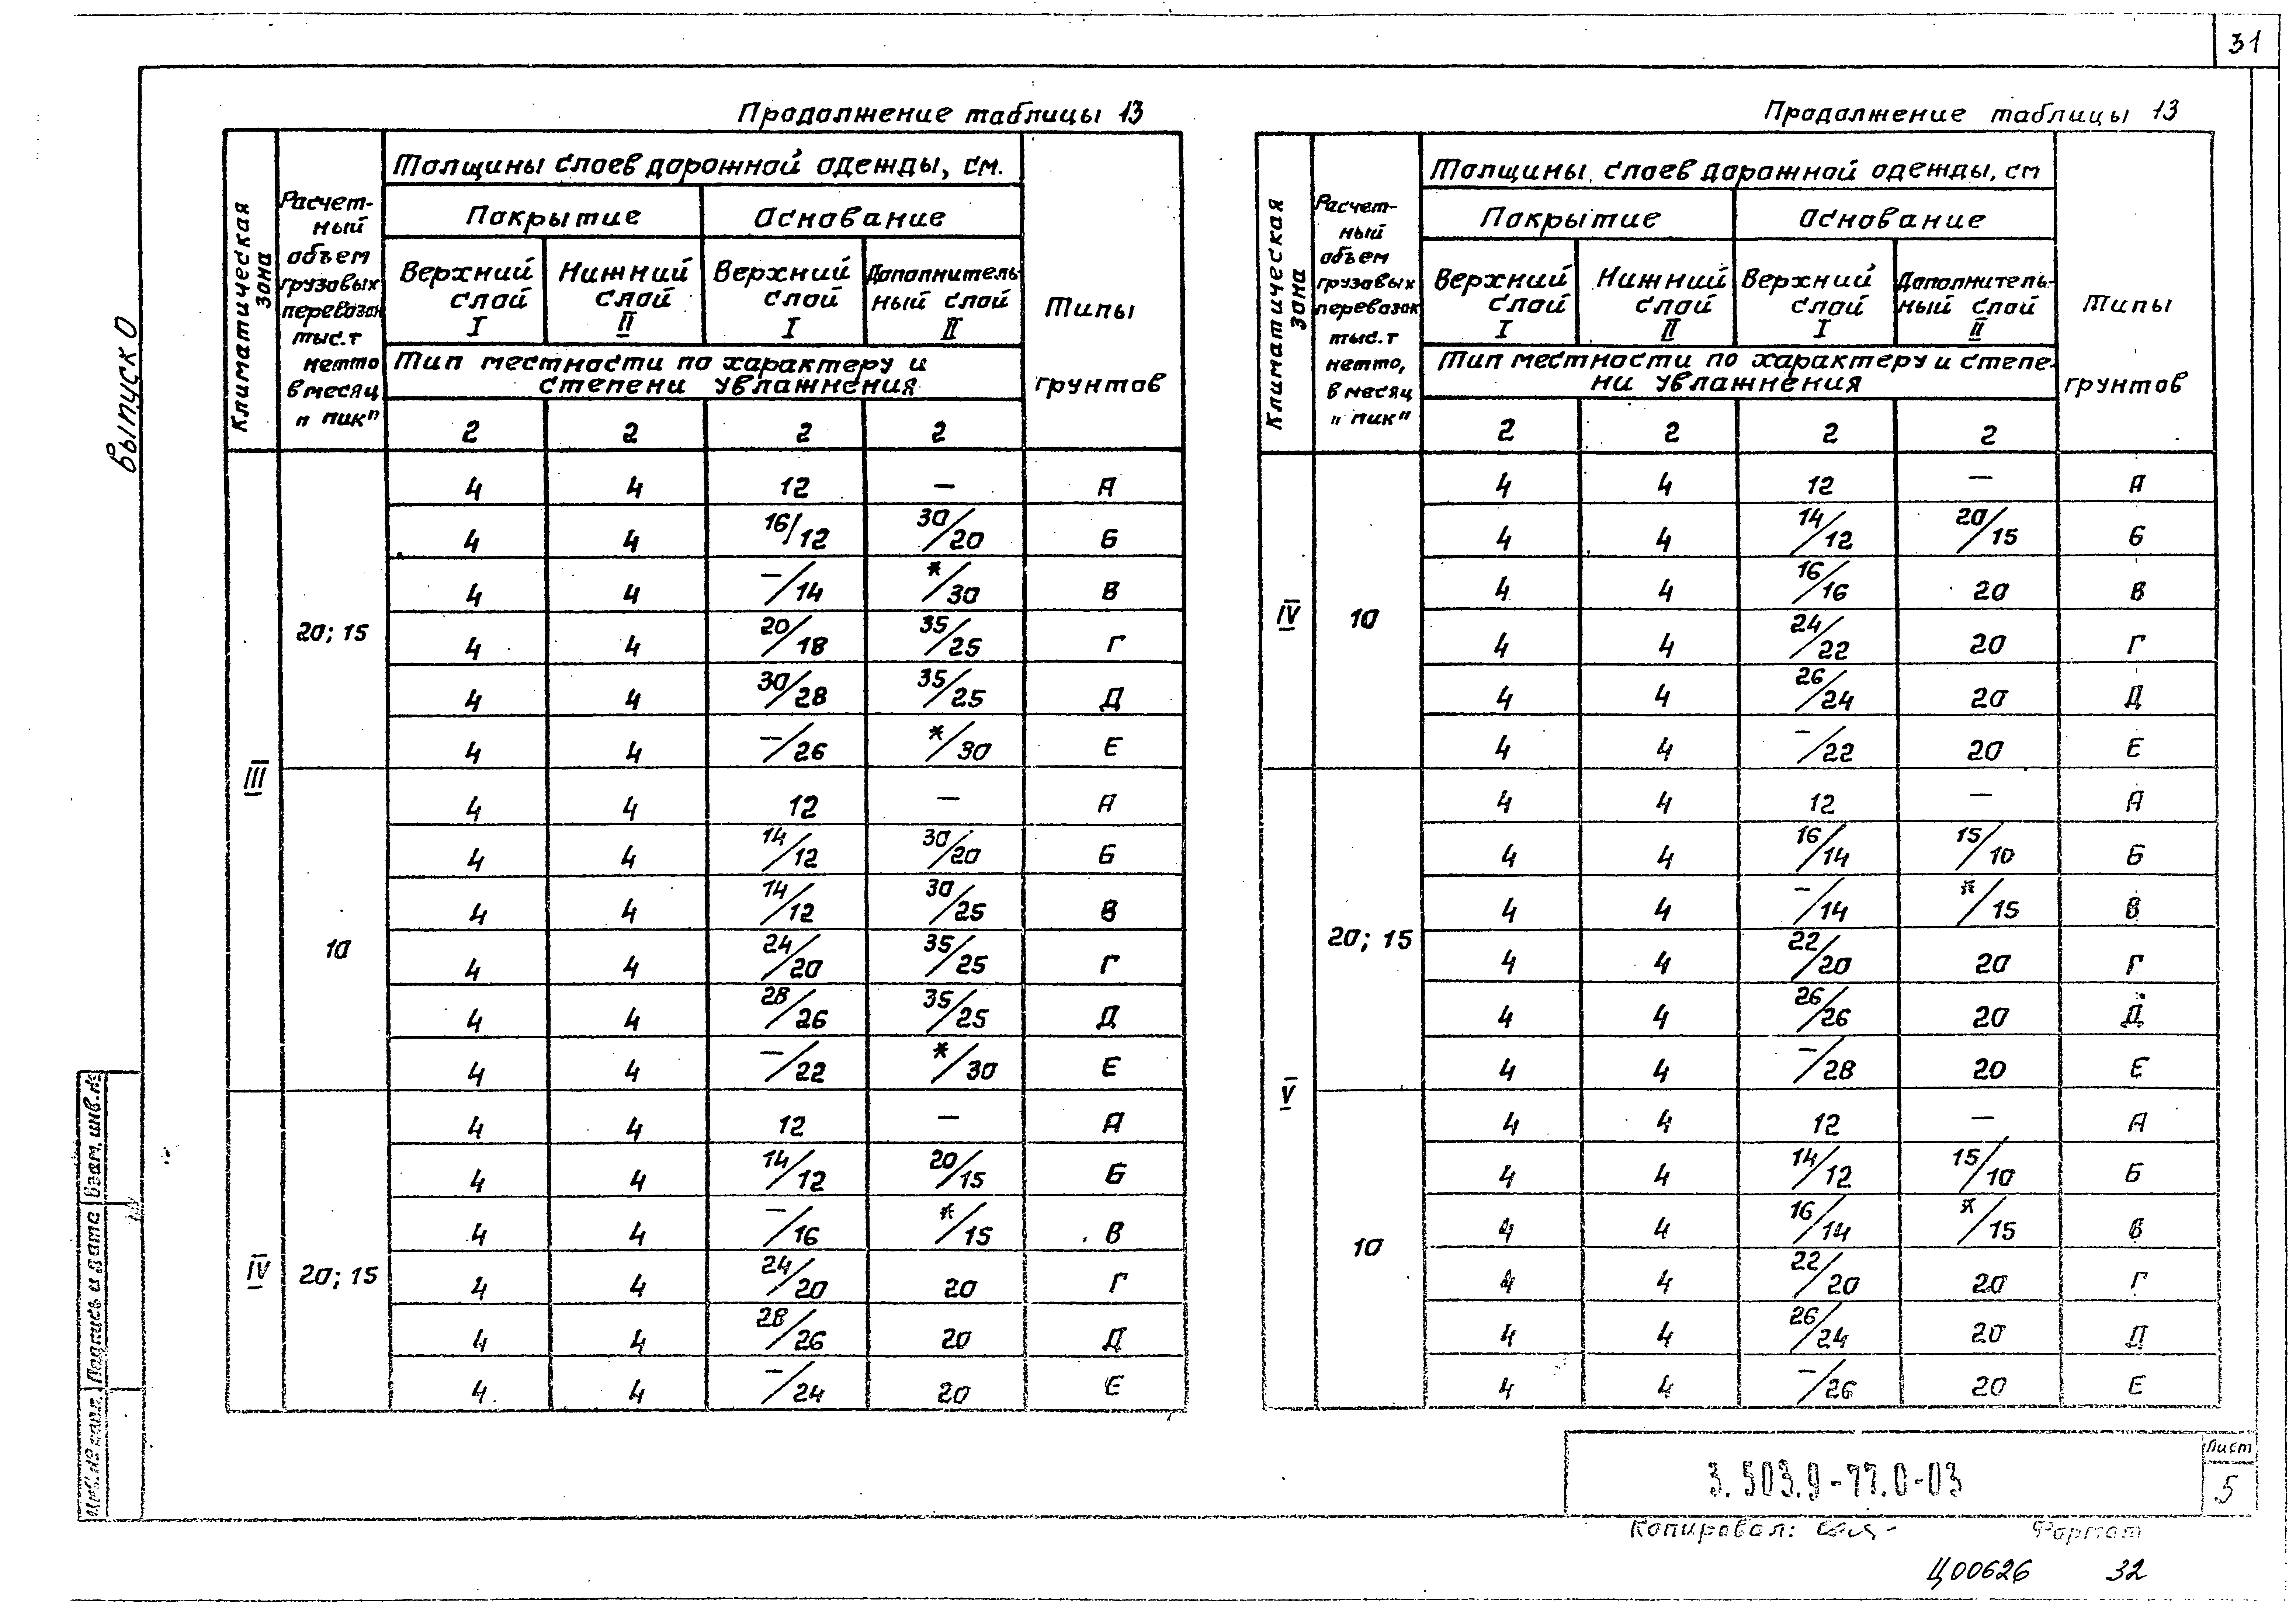 31
Выпуск 0
Продолжение таблицы 13
Климатическая зона
Расчет-
ный
объем
грузовых
перевозок
тыс.т
нетто
в месяц
„пик"
Толщины слоев дорожной одежды, см.
Покрытие
Основание
Верхний слой I
Нижний слой II
Верхний слой I
Дополнитель-
ный слой II
Типы
грунтов
Тип местности по характеру и
степени увлажнения
2 2 2 2
III
20; 15
4 4 12 — А
4 4 16/12 30/20 Б
4 4 —/14 */30 В
4 4 20/18 35/25 Г
4 4 30/28 35/25 Д
4 4 —/26 */30 Е
10
4 4 12 — А
4 4 14/12 30/20 Б
4 4 14/12 30/25 В
4 4 24/20 35/25 Г
4 4 28/26 35/25 Д
4 4 —/22 */30 Е
IV
20; 15
4 4 12 — А
4 4 14/12 20/15 Б
4 4 —/16 */15 В
4 4 24/20 20 Г
4 4 28/26 20 Д
4 4 —/24 20 Е
Продолжение таблицы 13
Климатическая зона
Расчет-
ный
объем
грузовых
перевозок
тыс.т
нетто,
в месяц
„пик"
Толщины слоев дорожной одежды, см
Покрытие
Основание
Верхний слой I
Нижний слой II
Верхний слой I
Дополнитель-
ный слой II
Типы
грунтов
Тип местности по характеру и степе-
ни увлажнения
2 2 2 2
IV
10
4 4 12 — А
4 4 14/12 20/15 Б
4 4 16/16 20 В
4 4 24/22 20 Г
4 4 26/24 20 Д
4 4 —/22 20 Е
V
20; 15
4 4 12 — А
4 4 16/14 15/10 Б
4 4 —/14 */15 В
4 4 22/20 20 Г
4 4 26/26 20 Д
4 4 —/28 20 Е
10
4 4 12 — А
4 4 14/12 15/10 Б
4 4 16/14 */15 В
4 4 22/20 20 Г
4 4 26/24 20 Д
4 4 —/26 20 Е
Взам. инв. №
Подпись и дата
Инв. № подл.
3.503.9-77.0-03
Лист
5
Копировал:
Формат
Ц00626
32